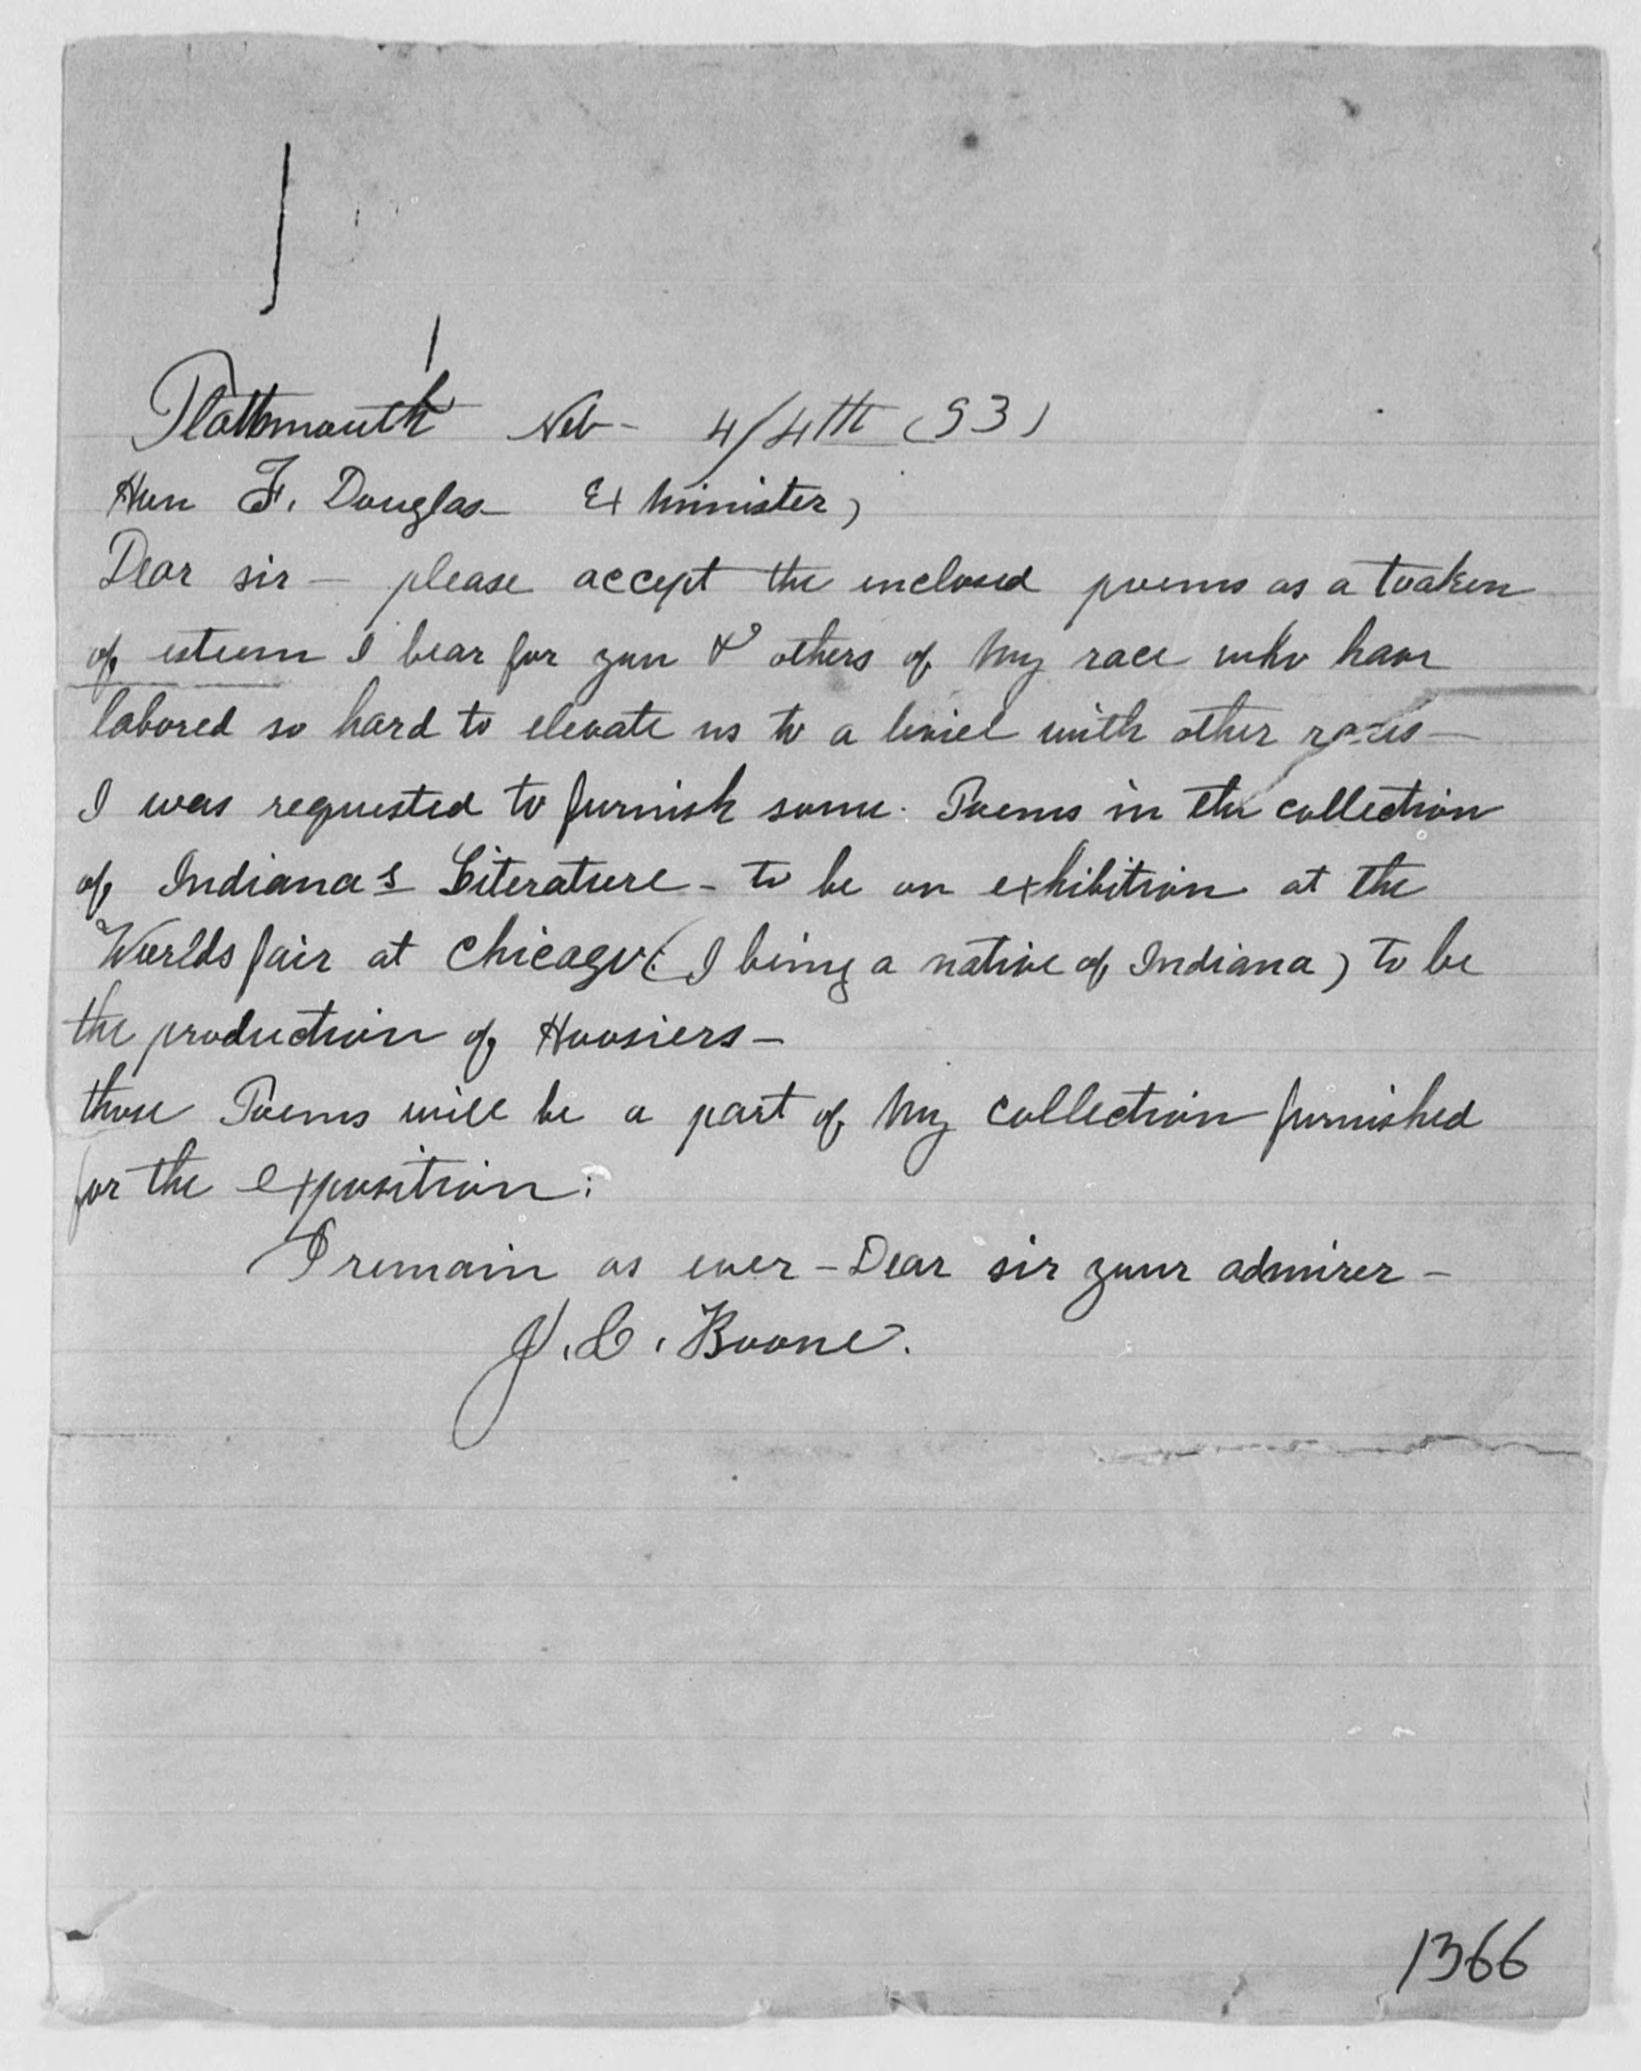 Plattsmouth Neb - 4/4th (93)
Hon F. Douglas - Ex Minister,
Dear sir - please accept the inclosed poems as a toaken
of esteem I bear for you & others of my race who have
labored so hard to elevate us to a leviel with other races -
I was requested to furnish some Poems in the collection
of Indiana's Literature - to be on exhibition at the
Worlds fair at Chicago: (I being a native of Indiana) to be
the production of Hoosiers -
those Poems will be a part of my collection furnished
for the exposition:
I remain as ever - Dear sir your admirer -
J. C. Boone.
1366